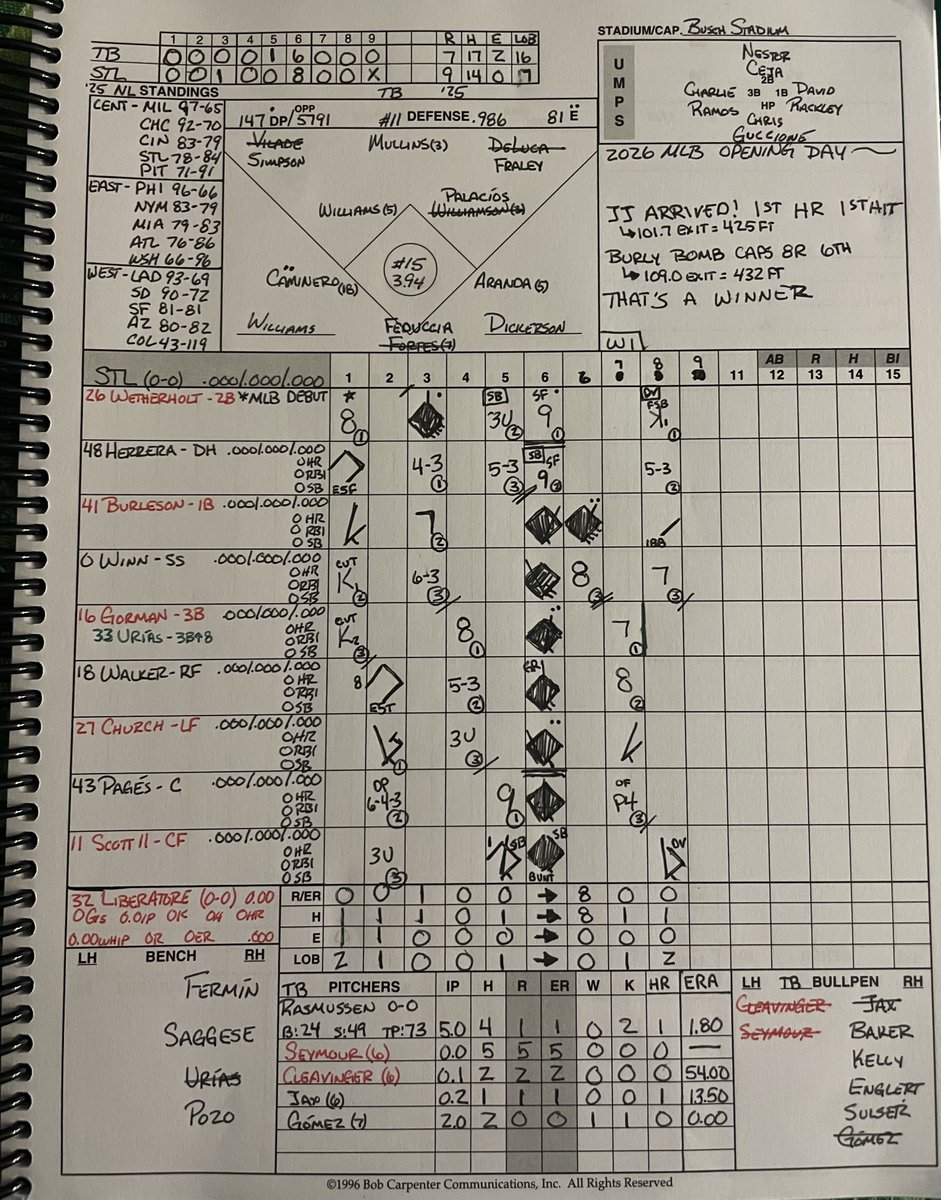 STADIUM/CAP. BUSCH STADIUM
1 2 3 4 5 6 7 8 9 R H E LOB
TB 0 0 0 0 1 6 0 0 0 7 17 2 16
STL 0 0 1 0 0 8 0 0 X 9 14 0 7
UMPS
NESTOR
CEJA
2B
CHARLIE 3B 1B DAVID
RAMOS HP RACKLEY
CHRIS
GUCCIONE
'25 NL STANDINGS
CENT- MIL 97-65
CHC 92-70
CIN 83-79
STL 78-84
PIT 71-91
EAST- PHI 96-66
NYM 83-79
MIA 79-83
ATL 76-86
WSH 66-96
WEST- LAD 93-69
SD 90-72
SF 81-81
AZ 80-82
COL 43-119
TB '25
147 DP/5791 OPP #11 DEFENSE .986 81 E
VILADE
SIMPSON
MULLINS(3)
DELUCA
FRALEY
WILLIAMS(5)
PALACIOS
WILLIAMSON(2)
CAMINERO(18)
#15
3.94
ARANDA(5)
WILLIAMS
FEDUCCIA
FORTES(7)
DICKERSON
2026 MLB OPENING DAY
JJ ARRIVED! 1ST HR 1ST HIT
↳101.7 EXIT = 425 FT
BURLY BOMB CAPS 8R 6TH
↳109.0 EXIT = 432 FT
THAT'S A WINNER
W1
STL (0-0) .000/.000/.000 1 2 3 4 5 6 6 7 8 9 11 12 13 14 15
AB R H BI
26 WETHERHOLT - 2B *MLB DEBUT * 8 1 SB 3U 2 SF 9 1 DV FSB K 1
48 HERRERA - DH .000/.000/.000
0HR
0RBI
0SB
ESF 4-3 1 5-3 3 SB SF 9 2 5-3 2
41 BURLESON - 1B .000/.000/.000
0HR
0RBI
0SB
7 2 IBB
0 WINN - SS .000/.000/.000
0HR
0RBI
0SB
CUT K 2 6-3 3 8 3 7 3
16 GORMAN - 3B .000/.000/.000
33 URÍAS - 3B^8
0HR
0RBI
0SB
CUT K2 3 8 1 7 1
18 WALKER - RF .000/.000/.000
0HR
0RBI
0SB
8 EST 5-3 2 8 2
27 CHURCH - LF .000/.000/.000
0HR
0RBI
0SB
1 3U 3
43 PAGÉS - C .000/.000/.000
0HR
0RBI
0SB
DP 6-4-3 2 9 1 OF P4 3
11 SCOTT II - CF .000/.000/.000
0HR
0RBI
0SB
3U 3 SB SB BUNT DV
32 LIBERATORE (0-0) 0.00
0GS 0.0IP 0K 0H 0HR
0.00WHIP 0R 0ER .000
R/ER 0 0 1 0 0 → 8 0 0
H 1 1 1 0 1 → 8 1 1
E 1 1 0 0 0 → 0 0 0
LOB 2 1 0 0 1 → 0 1 2
LH BENCH RH
FERMÍN
SAGGESE
URÍAS
POZO
TB PITCHERS IP H R ER W K HR ERA
RASMUSSEN 0-0
B:24 S:49 TP:73 5.0 4 1 1 0 2 1 1.80
SEYMOUR (6) 0.0 5 5 5 0 0 0 —
CLEAVINGER (6) 0.1 2 2 2 0 0 0 54.00
JAX (6) 0.2 1 1 1 0 0 1 13.50
GÓMEZ (7) 2.0 2 0 0 1 1 0 0.00
LH TB BULLPEN RH
CLEAVINGER JAX
SEYMOUR BAKER
KELLY
ENGLERT
SULSER
GÓMEZ
©1996 Bob Carpenter Communications, Inc. All Rights Reserved